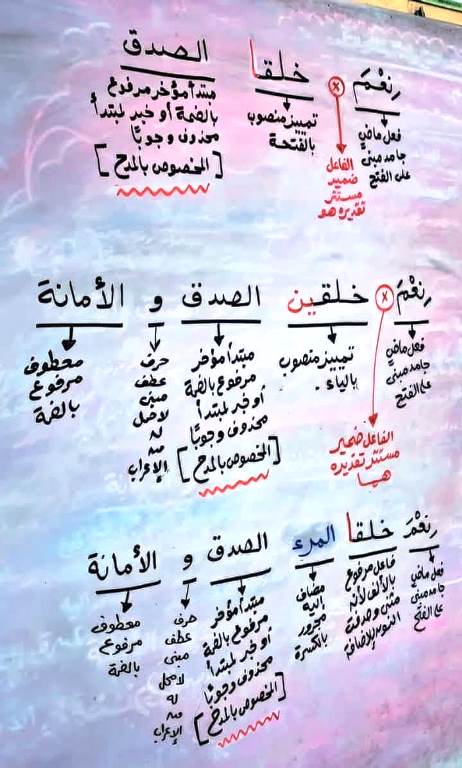 نِعْمَ × خلقا الصدق
فعل ماضٍ
جامد مبني
على الفتح
الفاعل
ضمير
مستتر
تقديره هو
تمييز منصوب
بالفتحة
مبتدأ مؤخر مرفوع
بالضمة أو خبر لمبتدأ
محذوف وجوبًا
[المخصوص بالمدح]
نِعْمَ × خلقين الصدق و الأمانة
فعل ماضٍ
جامد مبني
على الفتح
الفاعل ضمير
مستتر تقديره
هما
تمييز منصوب
بالياء.
مبتدأ مؤخر
مرفوع بالضمة
أو خبر لمبتدأ
محذوف وجوبًا
[المخصوص بالمدح]
حرف
عطف
مبني
لا محل
له
من
الإعراب
معطوف
مرفوع
بالضمة
نِعْمَ خلقا المرء الصدق و الأمانة
فعل ماضٍ
جامد مبني
على الفتح
فاعل مرفوع
بالألف لأنه
مثنى وحذفت
النون للإضافة
مضاف
إليه
مجرور
بالكسرة
مبتدأ مؤخر
مرفوع بالضمة
أو خبر لمبتدأ
محذوف وجوبًا
[المخصوص بالمدح]
حرف
عطف
مبني
لا محل
له
من
الإعراب
معطوف
مرفوع
بالضمة